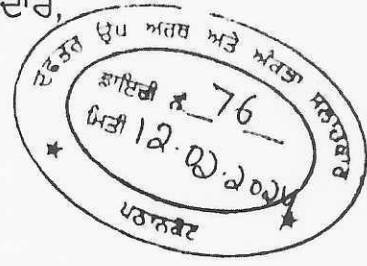 ਦਾਰ,
ਦਫਤਰ ਉਪ ਅਰਥ ਅਤੇ ਅੰਕੜਾ ਸਲਾਹਕਾਰ
ਡਾਇਰੀ ਨੰ 76
ਮਿਤੀ 12.02.2024
ਪਠਾਨਕੋਟ